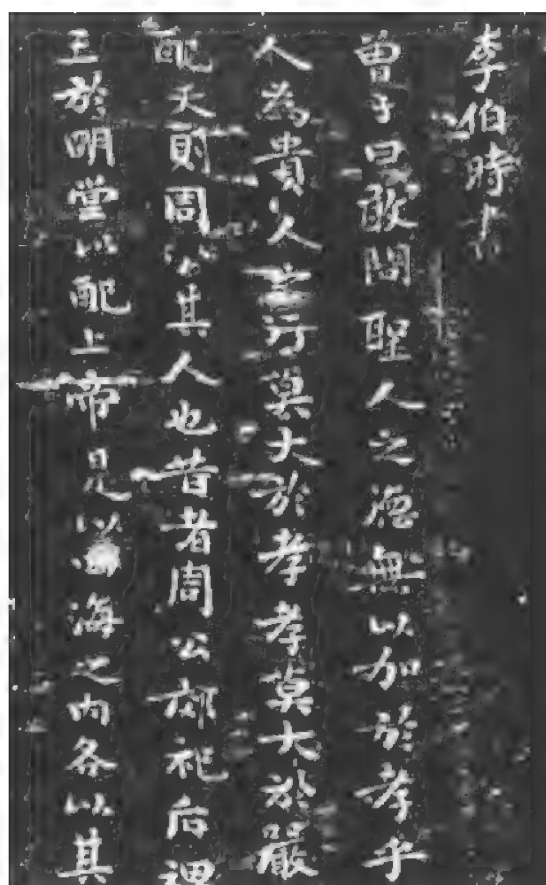 李伯時
曾子曰敢問聖人之德無以加於孝乎
人為貴人之行莫大於孝孝莫大於嚴
配天則周公其人也昔者周公郊祀后稷
王於明堂以配上帝是以四海之內各以其